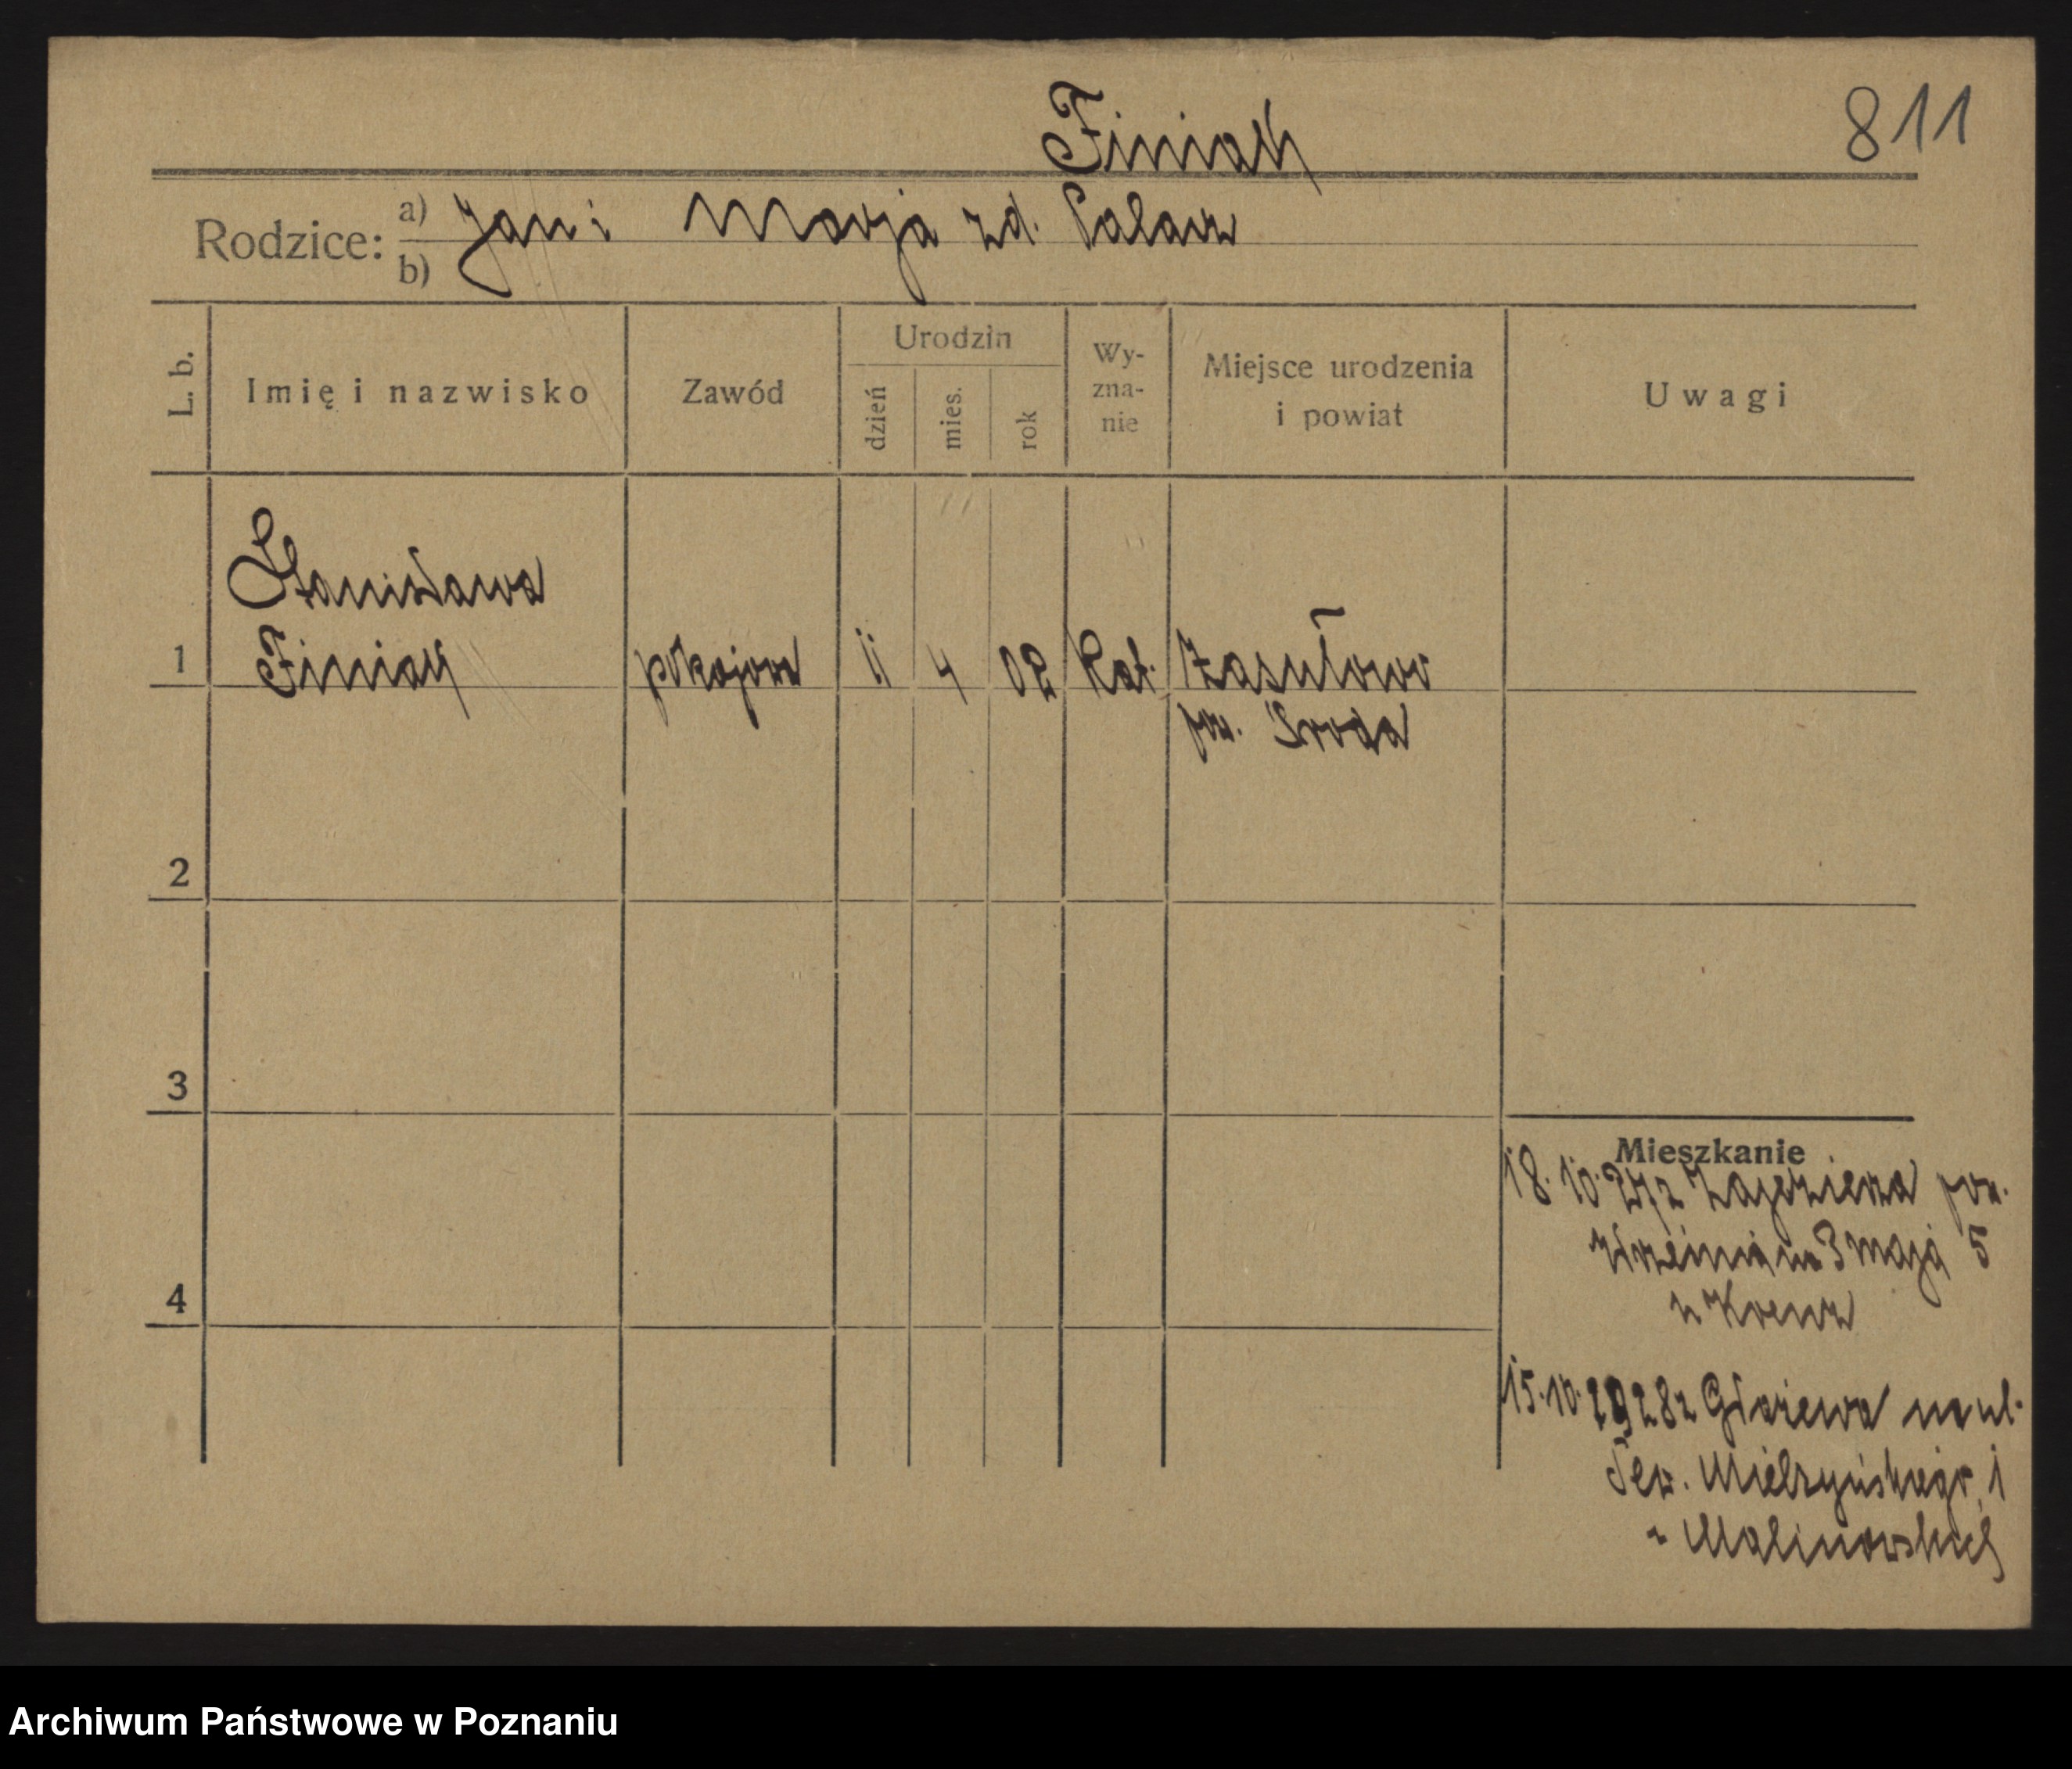 Finiak
811
Rodzice: a) Jan i Marja zd. Palacz
b)
L. b.
Imię i nazwisko
Zawód
Urodzin
dzień
mies.
rok
Wy-
zna-
nie
Miejsce urodzenia
i powiat
Uwagi
Stanisława
1 Finiak pokojowa 11 4 02 Kat. Zasułowo
pow. Środa
2
3
4
Mieszkanie
18. 10. z pow.
Września na 3 maja 5
u
15.10.1928 z na ul.
Sew. Mielżyńskiego 1
u Malinowskich
Archiwum Państwowe w Poznaniu